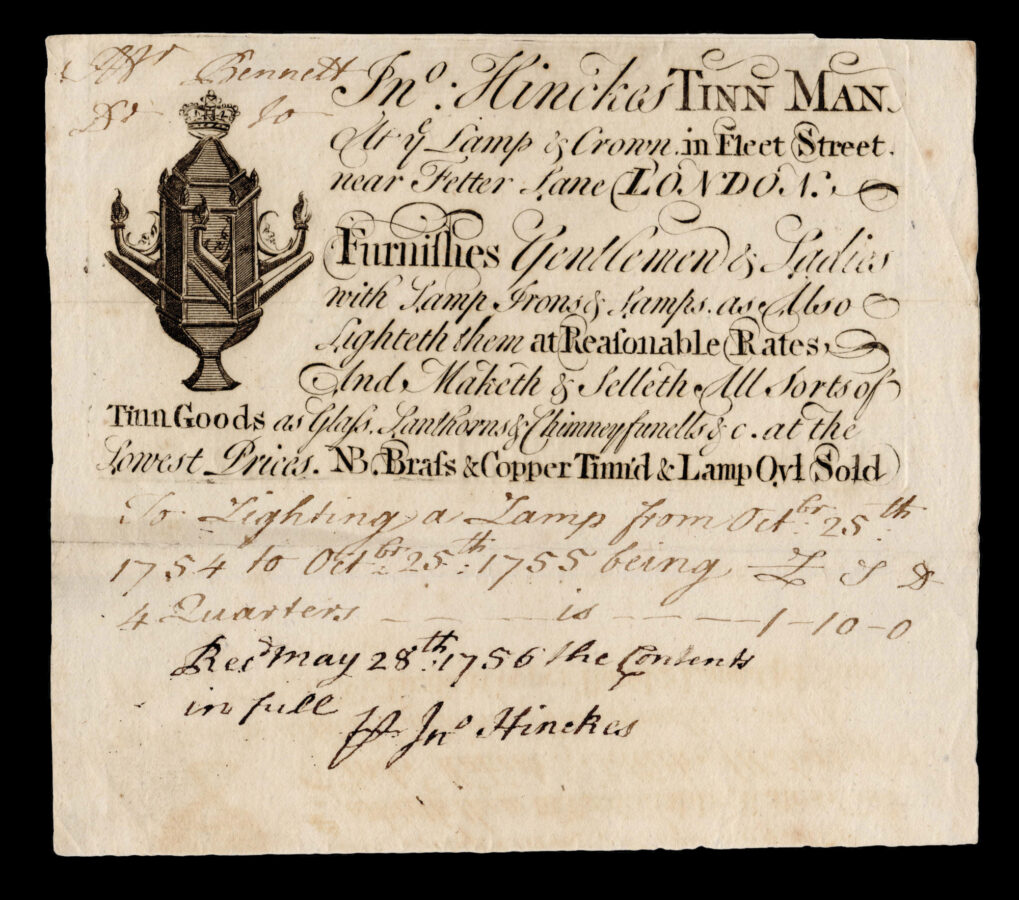 Mr Bennett
Dr to
Jno. Hinckes TINN MAN.
At ye Lamp & Crown. in Fleet Street.
near Fetter Lane LONDON.
Furniſhes Gentlemen & Ladies
with Lamp Irons & Lamps. as Also
Lighteth them at Reaſonable Rates
And Maketh & Selleth All Sorts of
Tinn Goods as Glaſs. Lanthorns & Chimney funells & c. at the
Lowest Prices. NB. Braſs & Copper Tinn'd & Lamp Oyl Sold
To Lighting a Lamp from Octbr. 25th
1754 to Octbr 25th 1755 being £ S D
4 Quarters — — — is — — — 1-10-0
Recd May 28th: 1756 the Contents
in full
Jno Hinckes